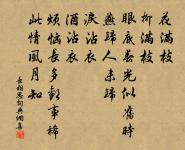 花滿枝
柳滿枝
眼底春光似舊時
燕歸人未歸
淚沾衣
酒沾衣
煩惱長多歡事稀
此情風月知
長相思